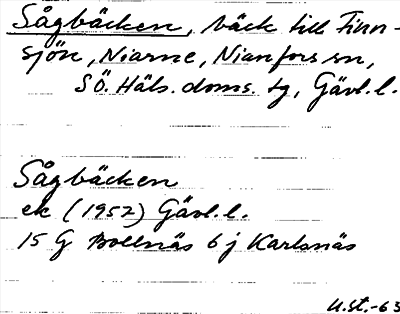 Sågbäcken, bäck till Finn-
sjön, Niarne, Nianfors sn,
SÖ. Häls. doms. tg, Gävl. l.
Sågbäcken
ek (1957) Gävl. l.
15 G Bollnäs 6 j Karlsnäs
U.St.-63